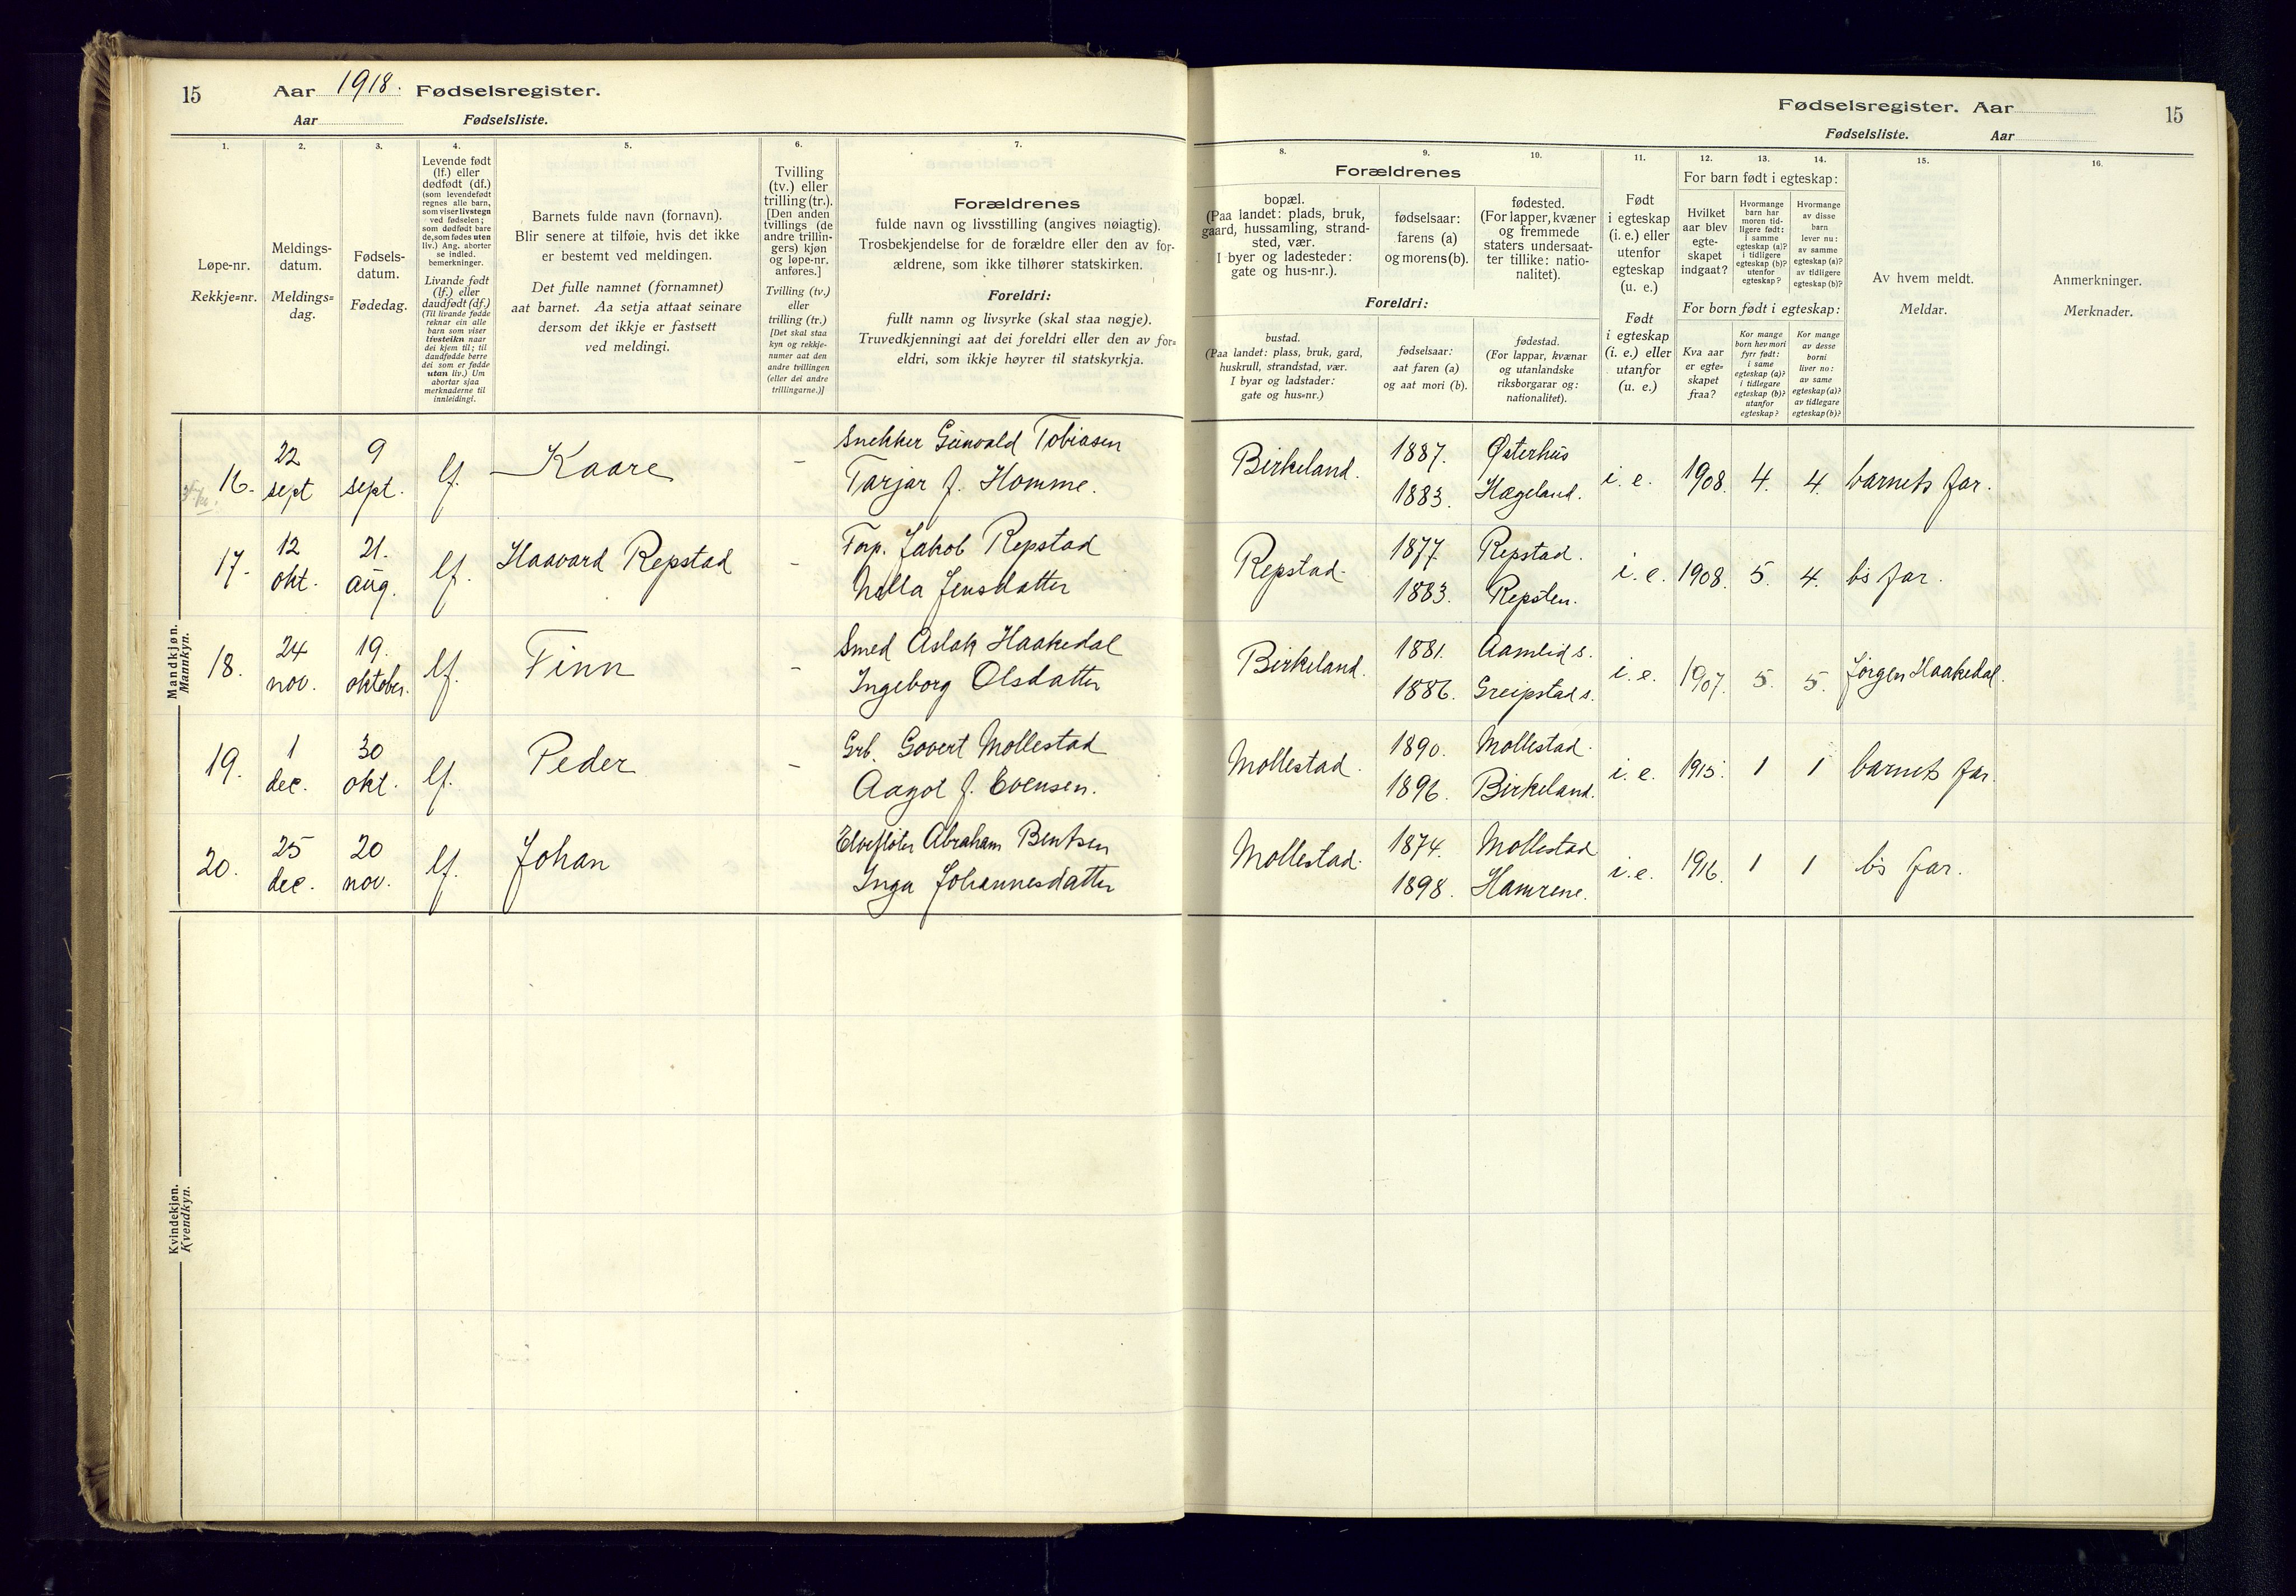 15 Aar 1918. Fødselsregister.
Aar Fødselsliste.
1. 2. 3. 4. 5. 6. 7.
Løpe-nr.
Rekkje=nr.
Meldings-
datum.
Meldings=
dag.
Fødsels-
datum.
Fødedag.
Levende født
(lf.) eller
dødfødt (df.)
(som levendefødt
regnes alle barn,
som viser livstegn
ved fødselen;
som dødfødt bare
de, som fødes uten
liv.) Ang. aborter
se indled.
bemerkninger.
Livande født
(lf.) eller
daudfødt (df.)
(Til livande fødde
reknar ein alle
barn som viser
livsteikn naar
dei kjem til; til
daudfødde berre
dei som er fødde
utan liv.) Um
abortar sjaa
merknaderne til
innleidingi.
Barnets fulde navn (fornavn).
Blir senere at tilføie, hvis det ikke
er bestemt ved meldingen.
Det fulle namnet (fornamnet)
aat barnet. Aa setja attaat seinare
dersom det ikkje er fastsett
ved meldingi.
Tvilling
(tv.) eller
trilling (tr.).
[Den anden
tvillings (de
andre trillin-
gers) kjøn
og løpe-nr.
anføres.]
Tvilling (tv.)
eller
trilling (tr.)
[Det skal staa
kyn og rekkje-
numer aat den
andre tvillingen
(eller dei andre
trillingarne.)]
Forældrenes
fulde navn og livsstilling (angives nøiagtig).
Trosbekjendelse for de forældre eller den av for-
ældrene, som ikke tilhører statskirken.
Foreldri:
fullt namn og livsyrke (skal staa nøgje).
Truvedkjenningi aat dei foreldri eller den av for=
eldri, som ikkje høyrer til statskyrkja.
Mandkjøn.
Mannkyn.
16. 22 sept 9 sept. lf. Kaare – Snekker Gunvald Tobiasen
Tarjar J. Homme.
17. 12 okt. 21. aug. lf. Haavard Repstad – Forp. Jakob Repstad
Nilla Jensdatter
18. 24 nov. 19. oktober. lf. Finn – Smed Aslak Haakedal
Ingeborg Olsdatter
19. 1 dec. 30 okt. lf. Peder – Grb. Govert Mollestad
Aagot J. Evensen.
20. 25 dec. 20 nov. lf. Johan Elvefløter Abraham Bentsen
Inga Johannesdatter
Kvindekjøn.
Kvendkyn.
Fødselsregister. Aar 15
Fødselsliste. Aar
8. 9. 10. 11. 12. 13. 14. 15. 16.
Forældrenes
bopæl.
(Paa landet: plads, bruk,
gaard, hussamling, strand-
sted, vær.
I byer og ladesteder:
gate og hus-nr.).
fødselsaar:
farens (a)
og morens (b).
fødested.
(For lapper, kvæner
og fremmede
staters undersaat-
ter tillike: natio-
nalitet).
Foreldri:
bustad.
(Paa landet: plass, bruk, gard,
huskrull, strandstad, vær.
I byar og ladstader:
gate og hus=nr.)
fødselsaar:
aat faren (a)
og aat mori (b).
fødestad.
(For lappar, kvænar
og utanlandske
riksborgarar og:
nationalitet).
Født
i egteskap
(i. e.) eller
utenfor
egteskap
(u. e.)
Født
i egteskap
(i. e.) eller
utanfor
(u. e.)
For barn født i egteskap:
Hvilket
aar blev
egte-
skapet
indgaat?
Hvormange
barn har
moren tid-
ligere født:
i samme
egteskap (a)?
i tidligere
egteskap (b)?
utenfor
egteskap?
Hvormange
av disse
barn
lever nu:
av samme
egteskap (a)?
av tidligere
egteskap (b)?
For born født i egteskap:
Kva aar
er egte=
skapet
fraa?
Kor mange
born hev mori
fyrr født:
i same
egteskap (a)?
i tidlegare
egteskap (b)?
utanfor
egteskap?
Kor mange
av desse
borni
liver no:
av same
egteskap (a)?
av tidlegare
egteskap (b)?
Av hvem meldt.
Meldar.
Anmerkninger.
Merknader.
Birkeland. 1887. Østerhus
1883. Hægeland. i. e. 1908. 4. 4. barnets far.
Repstad. 1877. Repstad.
1883. Repsten. i. e. 1908. 5. 4. bs far.
Birkeland. 1881. Aamlid s.
1886. Greipstad s. i. e. 1907. 5. 5. Jørgen Haakedal.
Mollestad. 1890. Mollestad.
1896. Birkeland. i. e. 1915. 1 1 barnets far.
Mollestad. 1874. Mollestad
1898. Hamrene. i. e. 1916. 1 1 bs far.